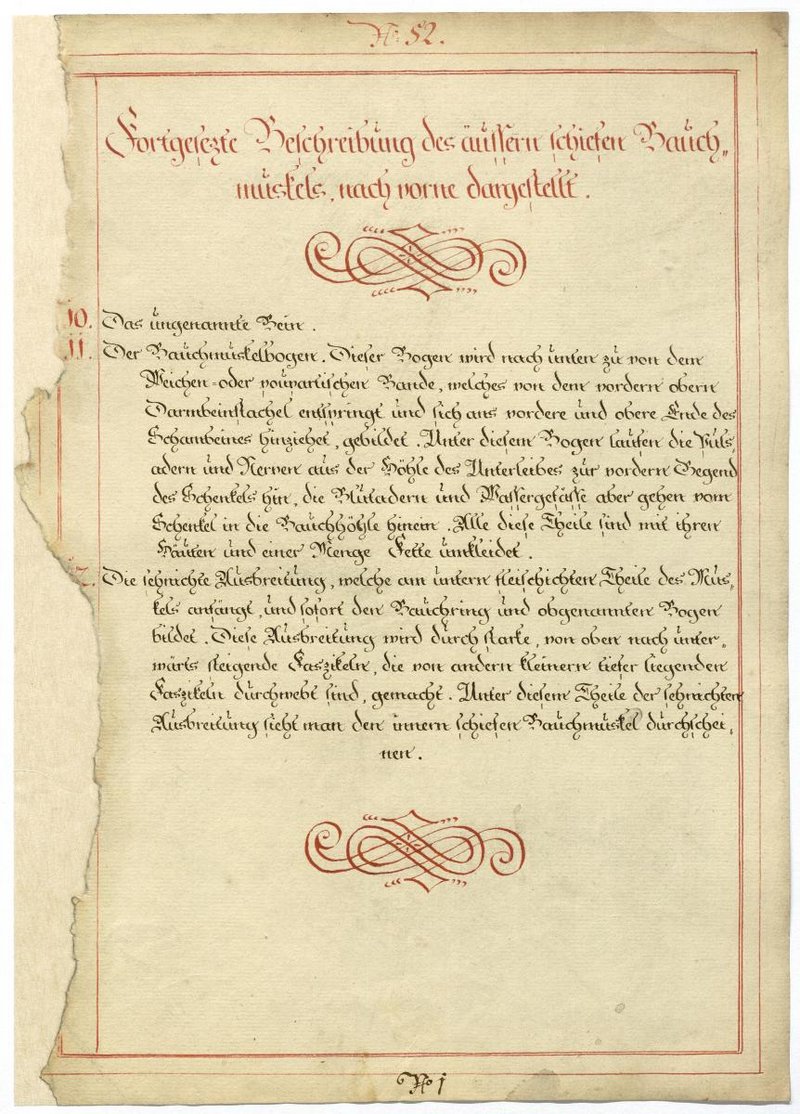 No: 52.
Fortgesezte Beschreibung des äussern schiefen Bauch„
muskels, nach vorne dargestellt.
10. Das ungenannte Bein.
11. Der Bauchmuskelbogen. Dieser Bogen wird nach unten zu von dem
Weichen- oder poupartischen Bande, welches von dem vordern obern
Darmbeinstachel entspringt und sich ans vordere und obere Ende des
Schambeines hinziehet, gebildet. Unter diesem Bogen laufen die Puls-
adern und Nerven aus der Höhle des Unterleibes zur vordern Gegend
des Schenkels hin, die Blutadern und Wassergefässe aber gehen vom
Schenkel in die Bauchhöhle hinein. Alle diese Theile sind mit ihren
Häuten und einer Menge Fette umkleidet.
2. Die sehnichte Ausbreitung, welche am untern fleischichten Theile des Mus„
kels anfängt, und sofort den Bauchring und obgenannten Bogen
bildet. Diese Ausbreitung wird durch starke, von oben nach unter„
wärts steigende Faszikeln, die von andern kleinern tiefer liegenden
Faszikeln durchwebt sind, gemacht. Unter diesem Theile der sehnichten
Ausbreitung sieht man den innern schiefen Bauchmuskel durchschei„
nen.
No 1